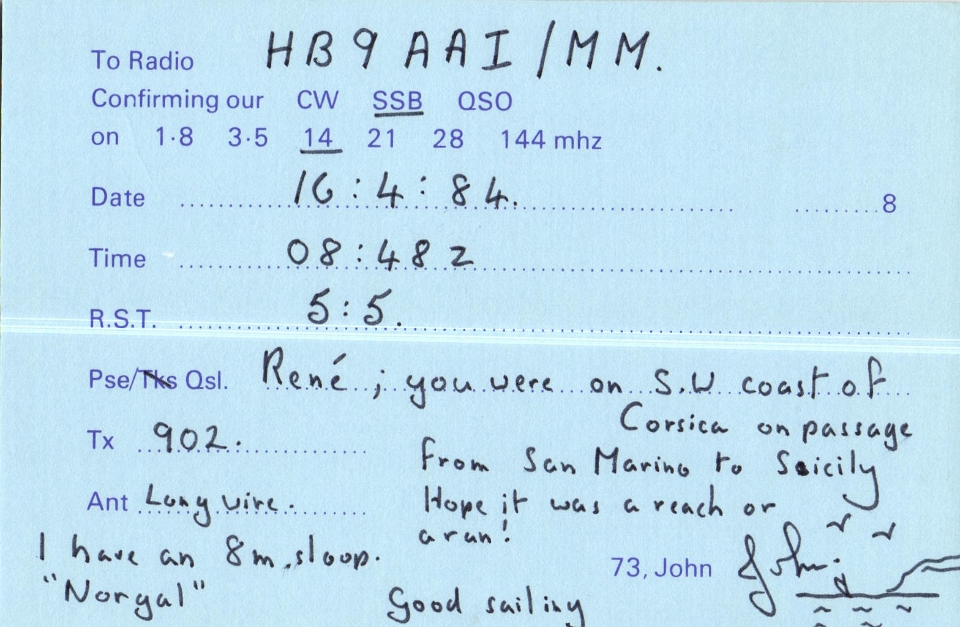 To Radio HB9AAI/MM.
Confirming our CW SSB QSO
on 1·8 3·5 14 21 28 144 mhz
Date 16:4:84. 8
Time 08:48z
R.S.T. 5:5.
Pse/Tks Qsl. René ; you were on S.W coast of
Corsica on passage
Tx 902.
from San Marino to Sicily
Ant Long wire.
Hope it was a reach or
a run!
I have an 8m sloop.
73, John John.
"Norgal"
Good sailing